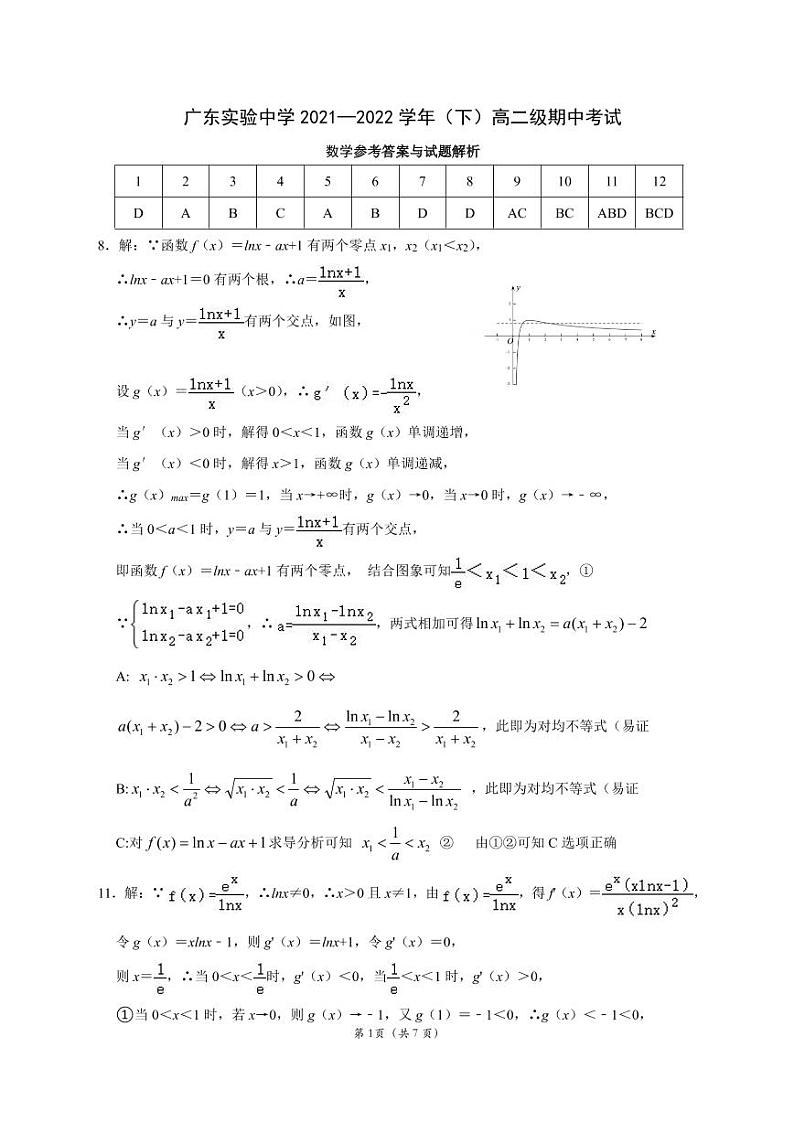 广东实验中学 2021—2022 学年（下）高二级期中考试
数学参考答案与试题解析
1 2 3 4 5 6 7 8 9 10 11 12
D A B C A B D D AC BC ABD BCD
8．解：∵函数 f（x）＝lnx﹣ax+1 有两个零点 x₁，x₂（x₁＜x₂），
∴lnx﹣ax+1＝0 有两个根，∴a＝(lnx+1)/x，
∴y＝a 与 y＝(lnx+1)/x 有两个交点，如图，
设 g（x）＝(lnx+1)/x（x＞0），∴g′（x）=-lnx/x²，
当 g′（x）＞0 时，解得 0＜x＜1，函数 g（x）单调递增，
当 g′（x）＜0 时，解得 x＞1，函数 g（x）单调递减，
∴g（x）max＝g（1）＝1，当 x→+∞时，g（x）→0，当 x→0 时，g（x）→﹣∞，
∴当 0＜a＜1 时，y＝a 与 y＝(lnx+1)/x 有两个交点，
即函数 f（x）＝lnx﹣ax+1 有两个零点， 结合图象可知 1/e＜x₁＜1＜x₂，①
∵{lnx₁-ax₁+1=0 lnx₂-ax₂+1=0，∴a=(lnx₁-lnx₂)/(x₁-x₂)，两式相加可得 ln x₁ + ln x₂ = a(x₁ + x₂) − 2
A: x₁·x₂ > 1 ⇔ ln x₁ + ln x₂ > 0 ⇔
a(x₁ + x₂) − 2 > 0 ⇔ a > 2/(x₁ + x₂) ⇔ (ln x₁ − ln x₂)/(x₁ − x₂) > 2/(x₁ + x₂)，此即为对均不等式（易证
B: x₁·x₂ < 1/a² ⇔ √(x₁·x₂) < 1/a ⇔ √(x₁·x₂) < (x₁ − x₂)/(ln x₁ − ln x₂) ，此即为对均不等式（易证
C:对 f(x) = ln x − ax + 1 求导分析可知 x₁ < 1/a < x₂ ② 由①②可知 C 选项正确
11．解：∵f(x)=eˣ/lnx，∴lnx≠0，∴x＞0 且 x≠1，由 f(x)=eˣ/lnx，得 f′（x）＝eˣ(xlnx-1)/(x(lnx)²)，
令 g（x）＝xlnx﹣1，则 g'（x）＝lnx+1，令 g'（x）＝0，
则 x＝1/e，∴当 0＜x＜1/e 时，g'（x）＜0，当 1/e＜x＜1 时，g'（x）＞0，
①当 0＜x＜1 时，若 x→0，则 g（x）→﹣1，又 g（1）＝﹣1＜0，∴g（x）＜﹣1＜0，
第 1页（共 7 页）